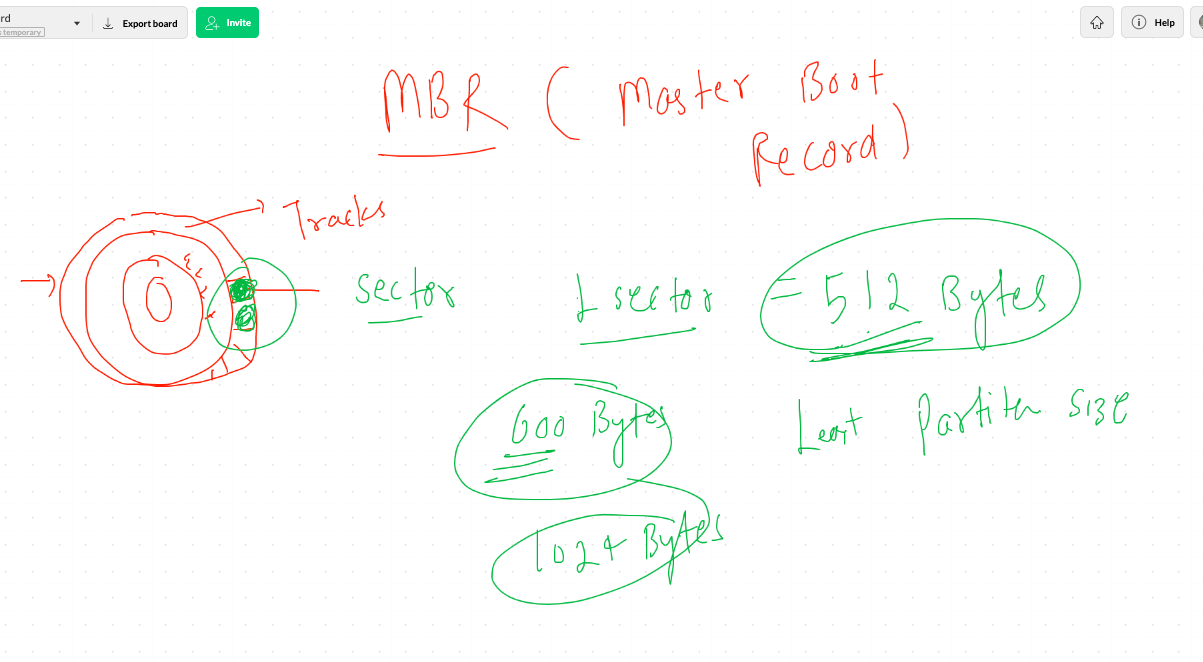 rd
s temporary
Export board
Invite
Help
MBR ( Master Boot
Record)
Tracks
sector
1 sector
= 512 Bytes
600 Bytes
Least Partiten size
1024 Bytes